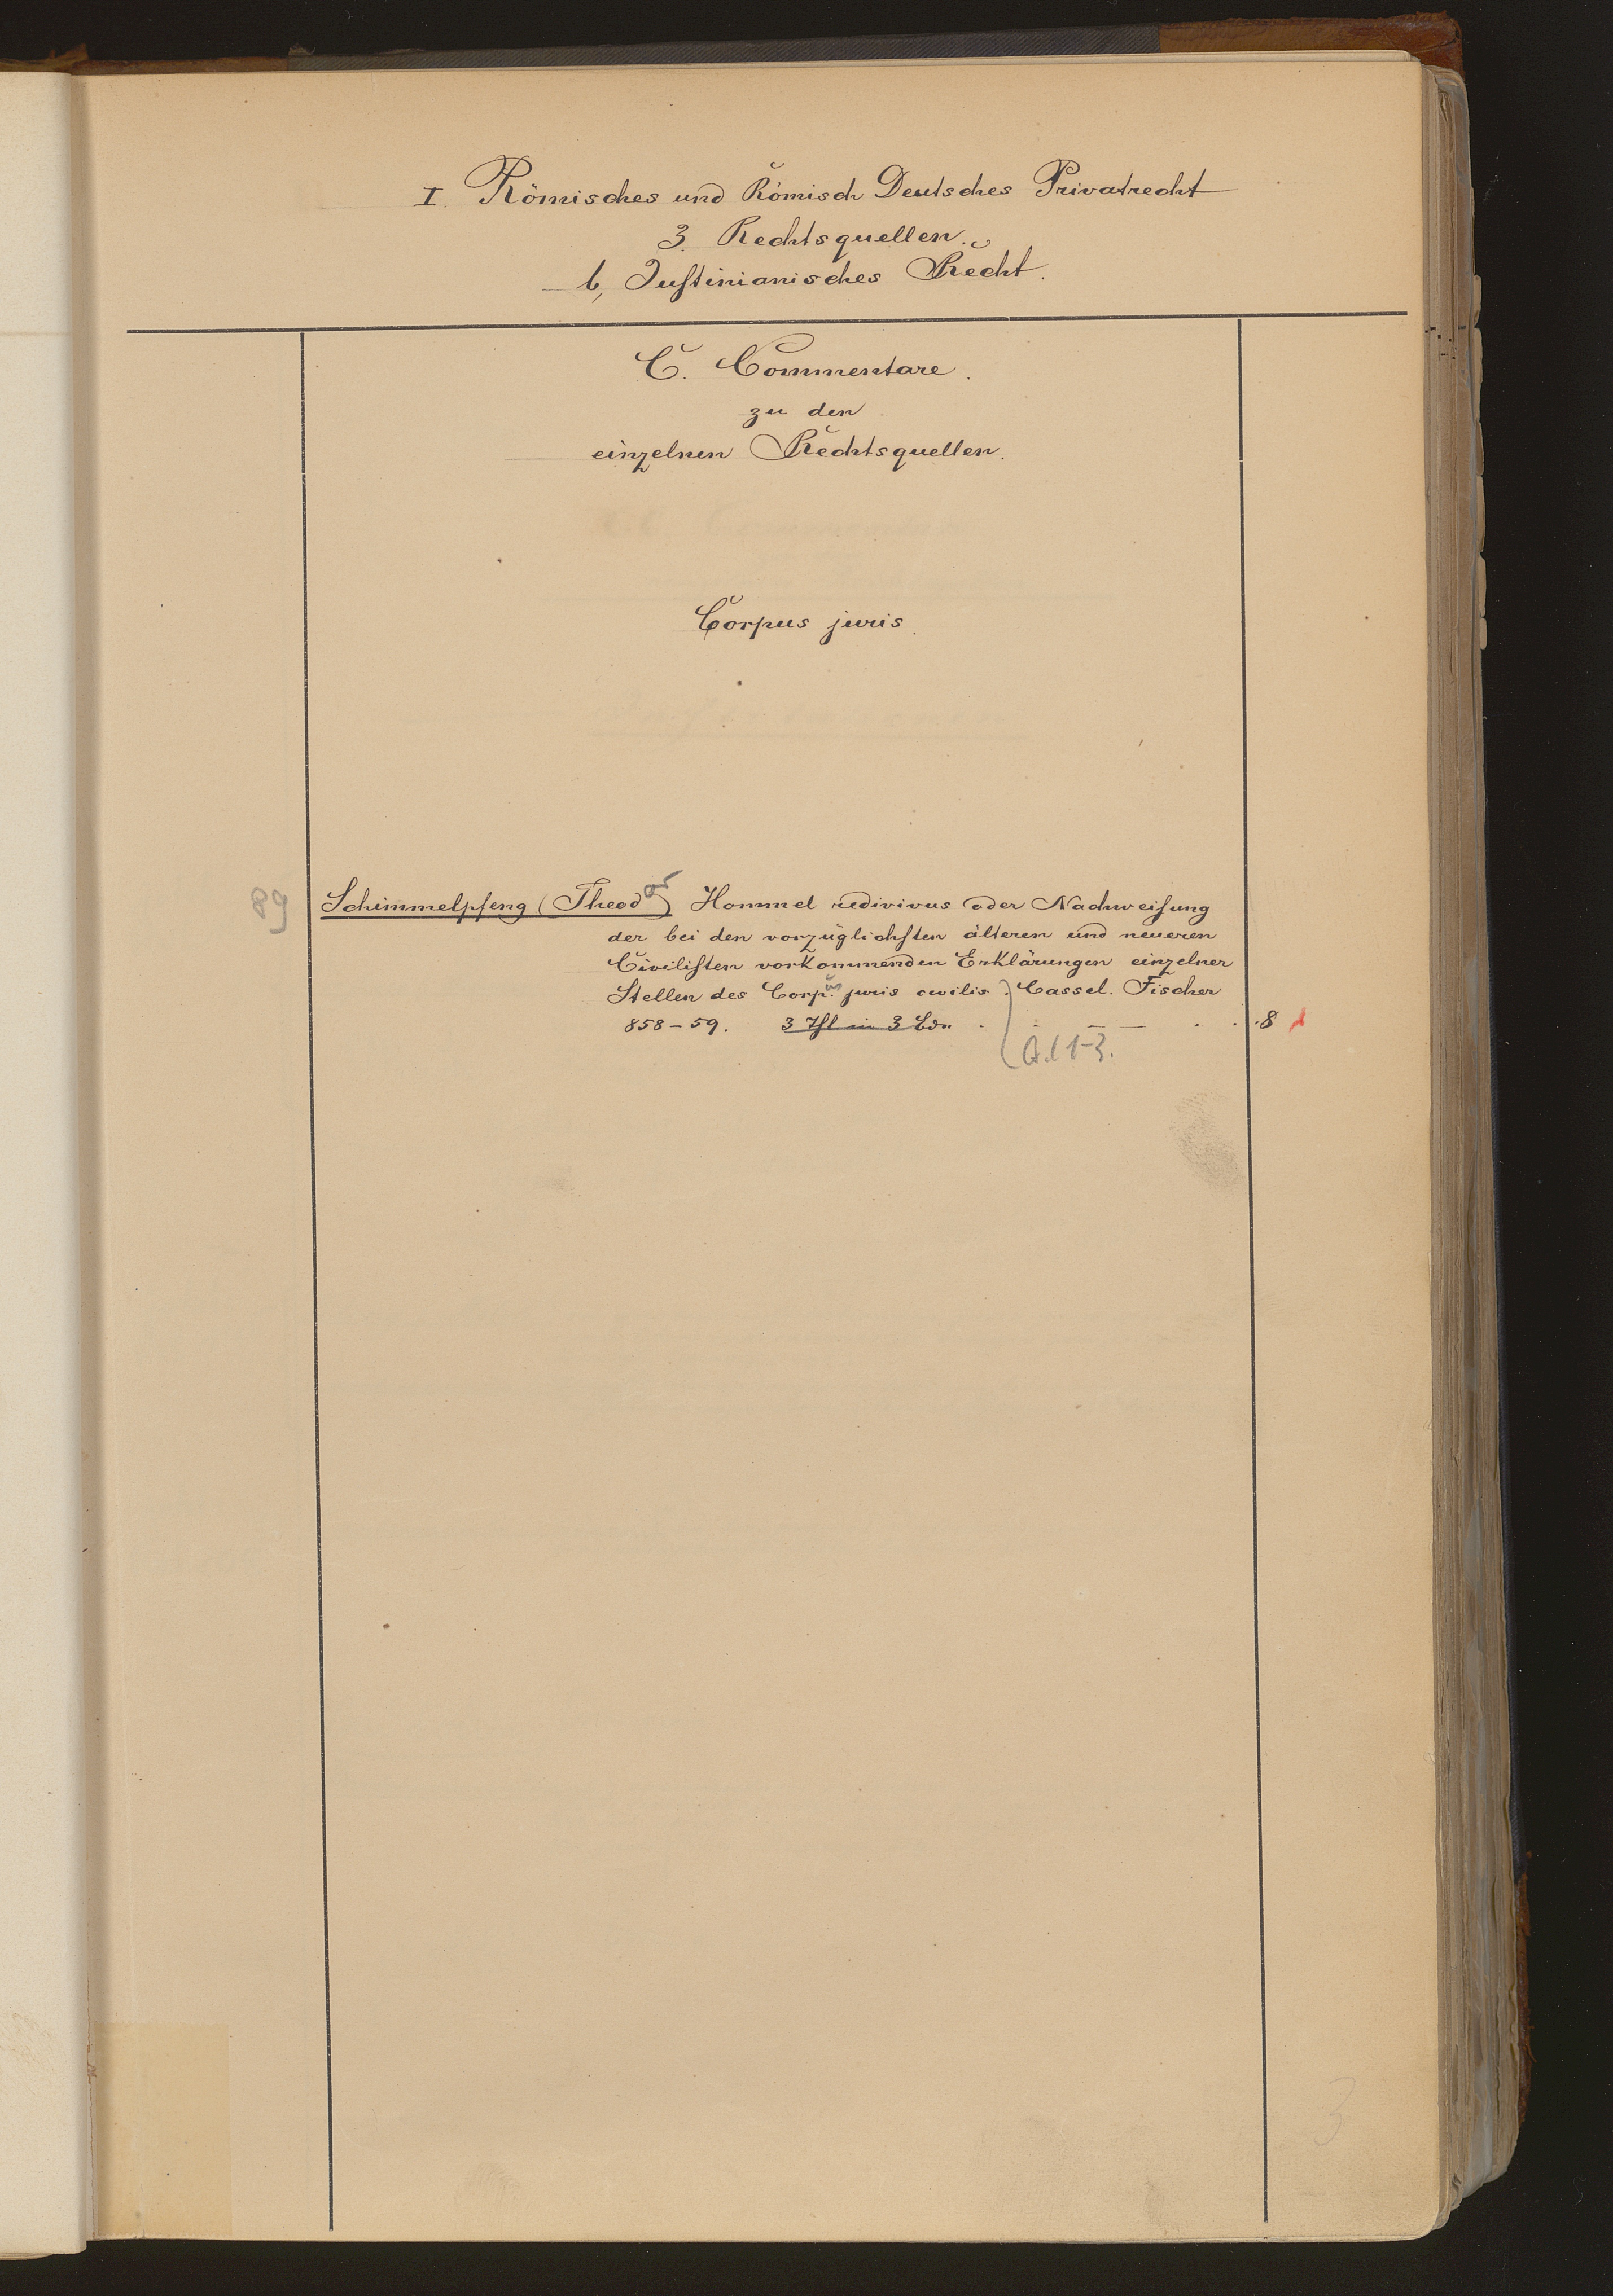 I. Römisches und Römisch Deutsches Privatrecht
3. Rechtsquellen.
b, Justinianisches Recht.
C. Commentare.
zu den
einzelnen Rechtsquellen.
Corpus juris.
89 Schimmelpfeng (Theodor) Hommel redivivus oder Nachweisung
der bei den vorzüglichsten älteren und neueren
Civilisten vorkommenden Erklärungen einzelner
Stellen des Corpus juris civilis. Cassel. Fischer
858-59. 3 Thl in 3 Bdn. 8
1-3.
3